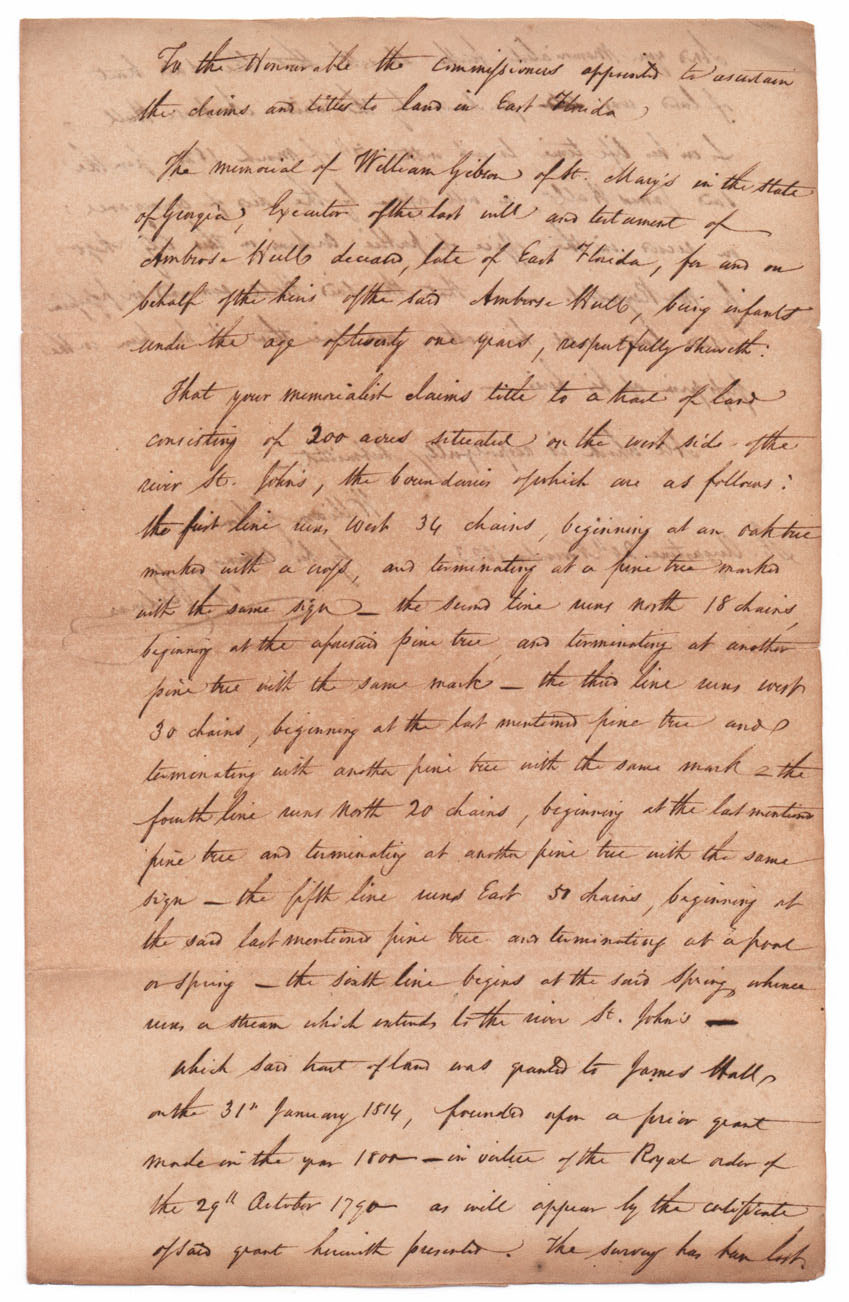 To the Honourable the commissioners appointed to ascertain
the claims and titles to land in East Florida
The memorial of William Gibson of St. Mary's in the state
of Georgia, Executor of the last will and testament of
Ambrose Hull deceased, late of East Florida, for and on
behalf of the heirs of the said Ambrose Hull, being infants
under the age of twenty one years, respectfully sheweth:
That your memorialist claims title to a tract of land
consisting of 200 acres situated on the west side of the
river St. John's, the boundaries of which are as follows:
the first line runs west 34 chains, beginning at an oak tree
marked with a cross, and terminating at a pine tree marked
with the same sign — the second line runs North 18 chains,
beginning at the aforesaid pine tree, and terminating at another
pine tree with the same mark — the third line runs west
30 chains, beginning at the last mentioned pine tree and
terminating with another pine tree with the same mark — the
fourth line runs North 20 chains, beginning at the last mentioned
pine tree and terminating at another pine tree with the same
sign — the fifth line runs East 50 chains, beginning at
the said last mentioned pine tree and terminating at a pool
or spring — the sixth line begins at the said spring, whence
runs a stream which extends to the river St. John's —
which said tract of land was granted to James Hall
on the 31st January 1814, founded upon a prior grant
made in the year 1800 — in virtue of the Royal order of
the 29th October 1790 as will appear by the certificate
of said grant herewith presented. The survey has been lost.